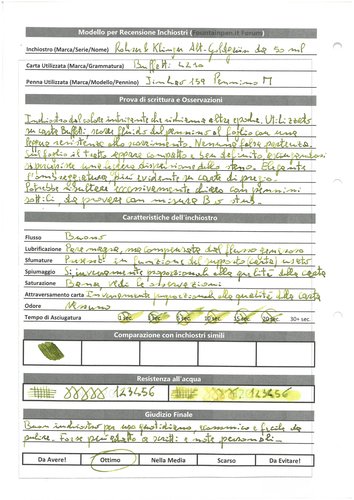 Modello per Recensione Inchiostri (Fountainpen.it Forum)
Inchiostro (Marca/Serie/Nome) Rohrer & Klingner Alt-Goldgrün da 50 ml
Carta Utilizzata (Marca/Grammatura) Buffetti
Penna Utilizzata (Marca/Modello/Pennino) Jinhao 159 Pennino M
Prova di scrittura e Osservazioni
Inchiostro dal colore interessante che richiama altre epoche. Utilizzato
su carta Buffetti scorre fluido dal pennino al foglio con una
leggera resistenza allo scorrimento. Nessuna falsa partenza.
Sul foglio il tratto appare compatto e ben definito
Elegante
l'ombreggiatura più evidente su carte di pregio.
Potrebbe risultare eccessivamente chiaro con pennini
sottili, da provare con misura B o stub.
Caratteristiche dell'inchiostro
Flusso Buono
Lubrificazione Poco magra, ma compensata dal flusso generoso
Sfumature Presenti in funzione del supporto (carta) usato
Spiumaggio Si, inversamente proporzionale alla qualità della carta
Saturazione Buona, vedi le osservazioni
Attraversamento carta Inversamente proporzionale alla qualità della carta
Odore Nessuno
Tempo di Asciugatura 1 sec. 5 sec. 10 sec. 15 sec. 20 sec. 30+ sec.
Comparazione con inchiostri simili
Resistenza all'acqua
123456 123456
Giudizio Finale
Buon inchiostro per uso quotidiano, economico e facile da
pulire. Forse più adatto a scritti e note personali.
Da Avere! Ottimo Nella Media Scarso Da Evitare!